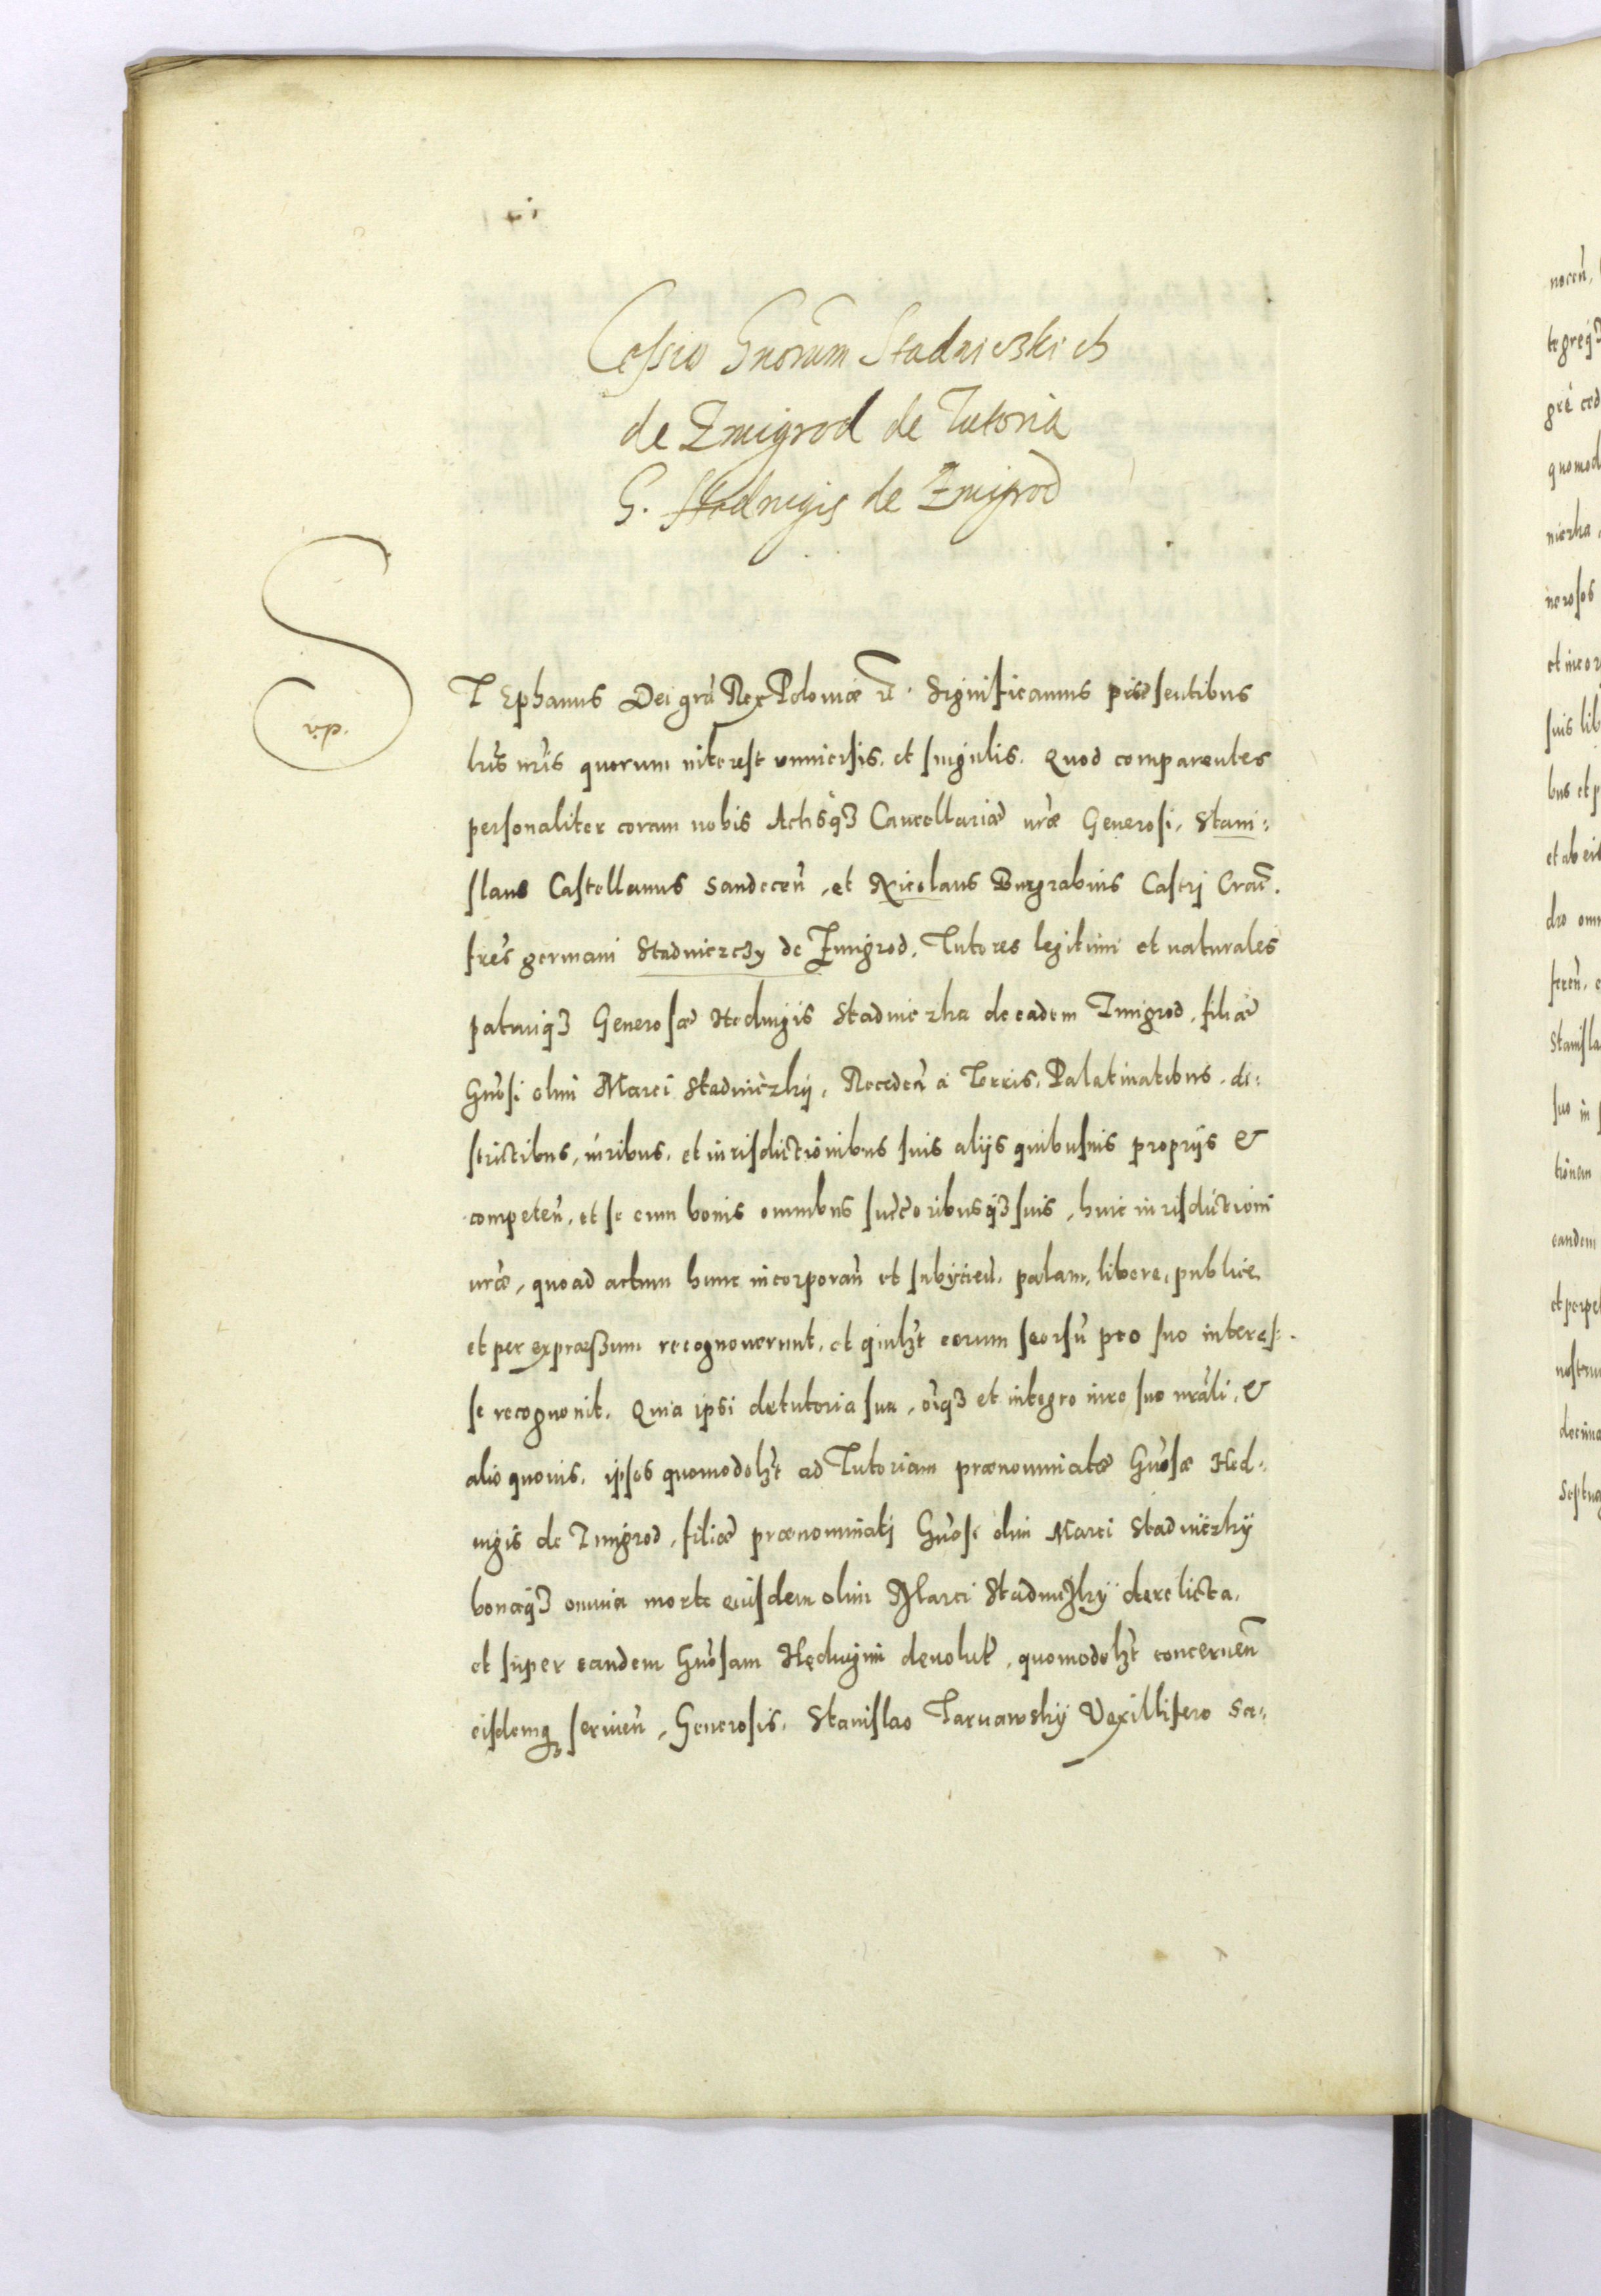 Cessio Gnorum Stadniczkich
de Zmigrod de Tutoria
G. Hedvigis de Zmigrod
STEphanus Dei grã Rex Poloniæ &c. Significamus præsentibus
lris nris quorum interest vniuersis, et singulis. Quod comparentes
personaliter coram nobis Actisq3 Cancellariæ nræ Generosi, Stani:
slaus Castellanus Sandecen, et Nicolaus Burgrabius Castri Crac.
frẽs germani Stadniczczy de Zmigrod, Tutores legitimi et naturales
patruiq3 Generosæ Hedvigis Stadniczka de eadem Zmigrod, filiæ
Gnosi olim Marci Stadniczky, Receden à Terris, Palatinatibus, di:
strictibus, iuribus, et iurisdictionibus suis aliis quibusuis propriis &
competen, et se cum bonis omnibus succoribusq3 suis, huic iurisdictioni
nræ, quoad actum hunc incorporan et subijcien, palam, libere, publice
et per expræssum recognouerunt, et quilzt eorum seorsũ pro suo interes:
se recognouit. Quia ipsi de tutoria sua, oĩq3 et integro iure suo nrãli, &
alio quouis, ipsos quomodolzt ad Tutoriam prænominatæ Gnosæ Hed:
uigis de Zmigrod, filiæ prænominati Gnosi olim Marci Stadniczky
bonaq3 omnia morte eiusdem olim Marci Stadniczky derelicta,
et super eandem Gnosam Heduigim deuolut, quomodolzt concernen
eisdemq3 seruien, Generosis, Stanislao Tarnawsky Vexillifero Sa: